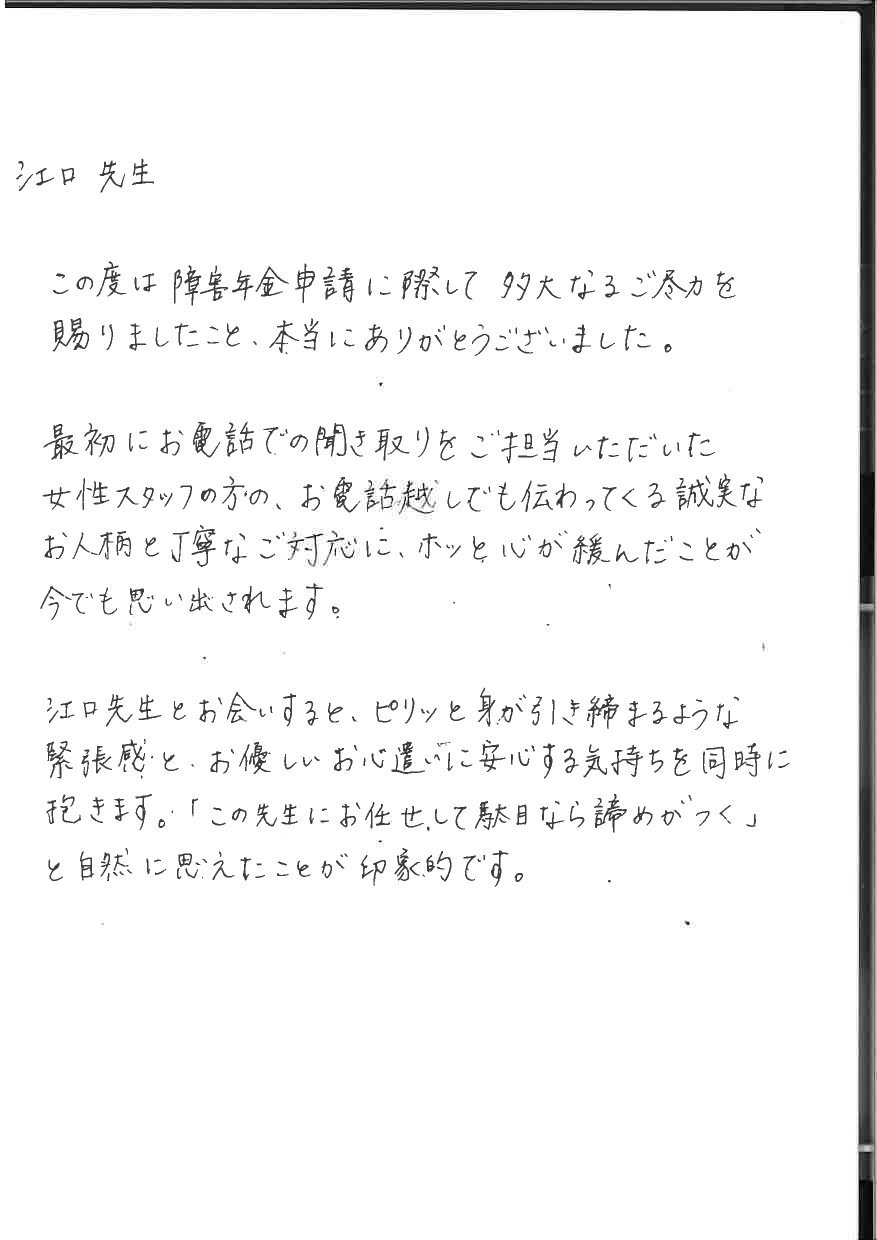 江口 先生
この度は 障害年金申請に際して 多大なるご尽力を
賜りましたこと、本当にありがとうございました。
最初にお電話での聞き取りをご担当いただいた
女性スタッフの方の、お電話越しでも伝わってくる誠実な
お人柄と丁寧なご対応に、ホッと心が緩んだことが
今でも思い出されます。
江口先生とお会いすると、ピリッと身が引き締まるような
緊張感と、お優しいお心遣いに安心する気持ちを同時に
抱きます。「この先生にお任せして駄目なら諦めがつく」
と自然に思えたことが印象的です。